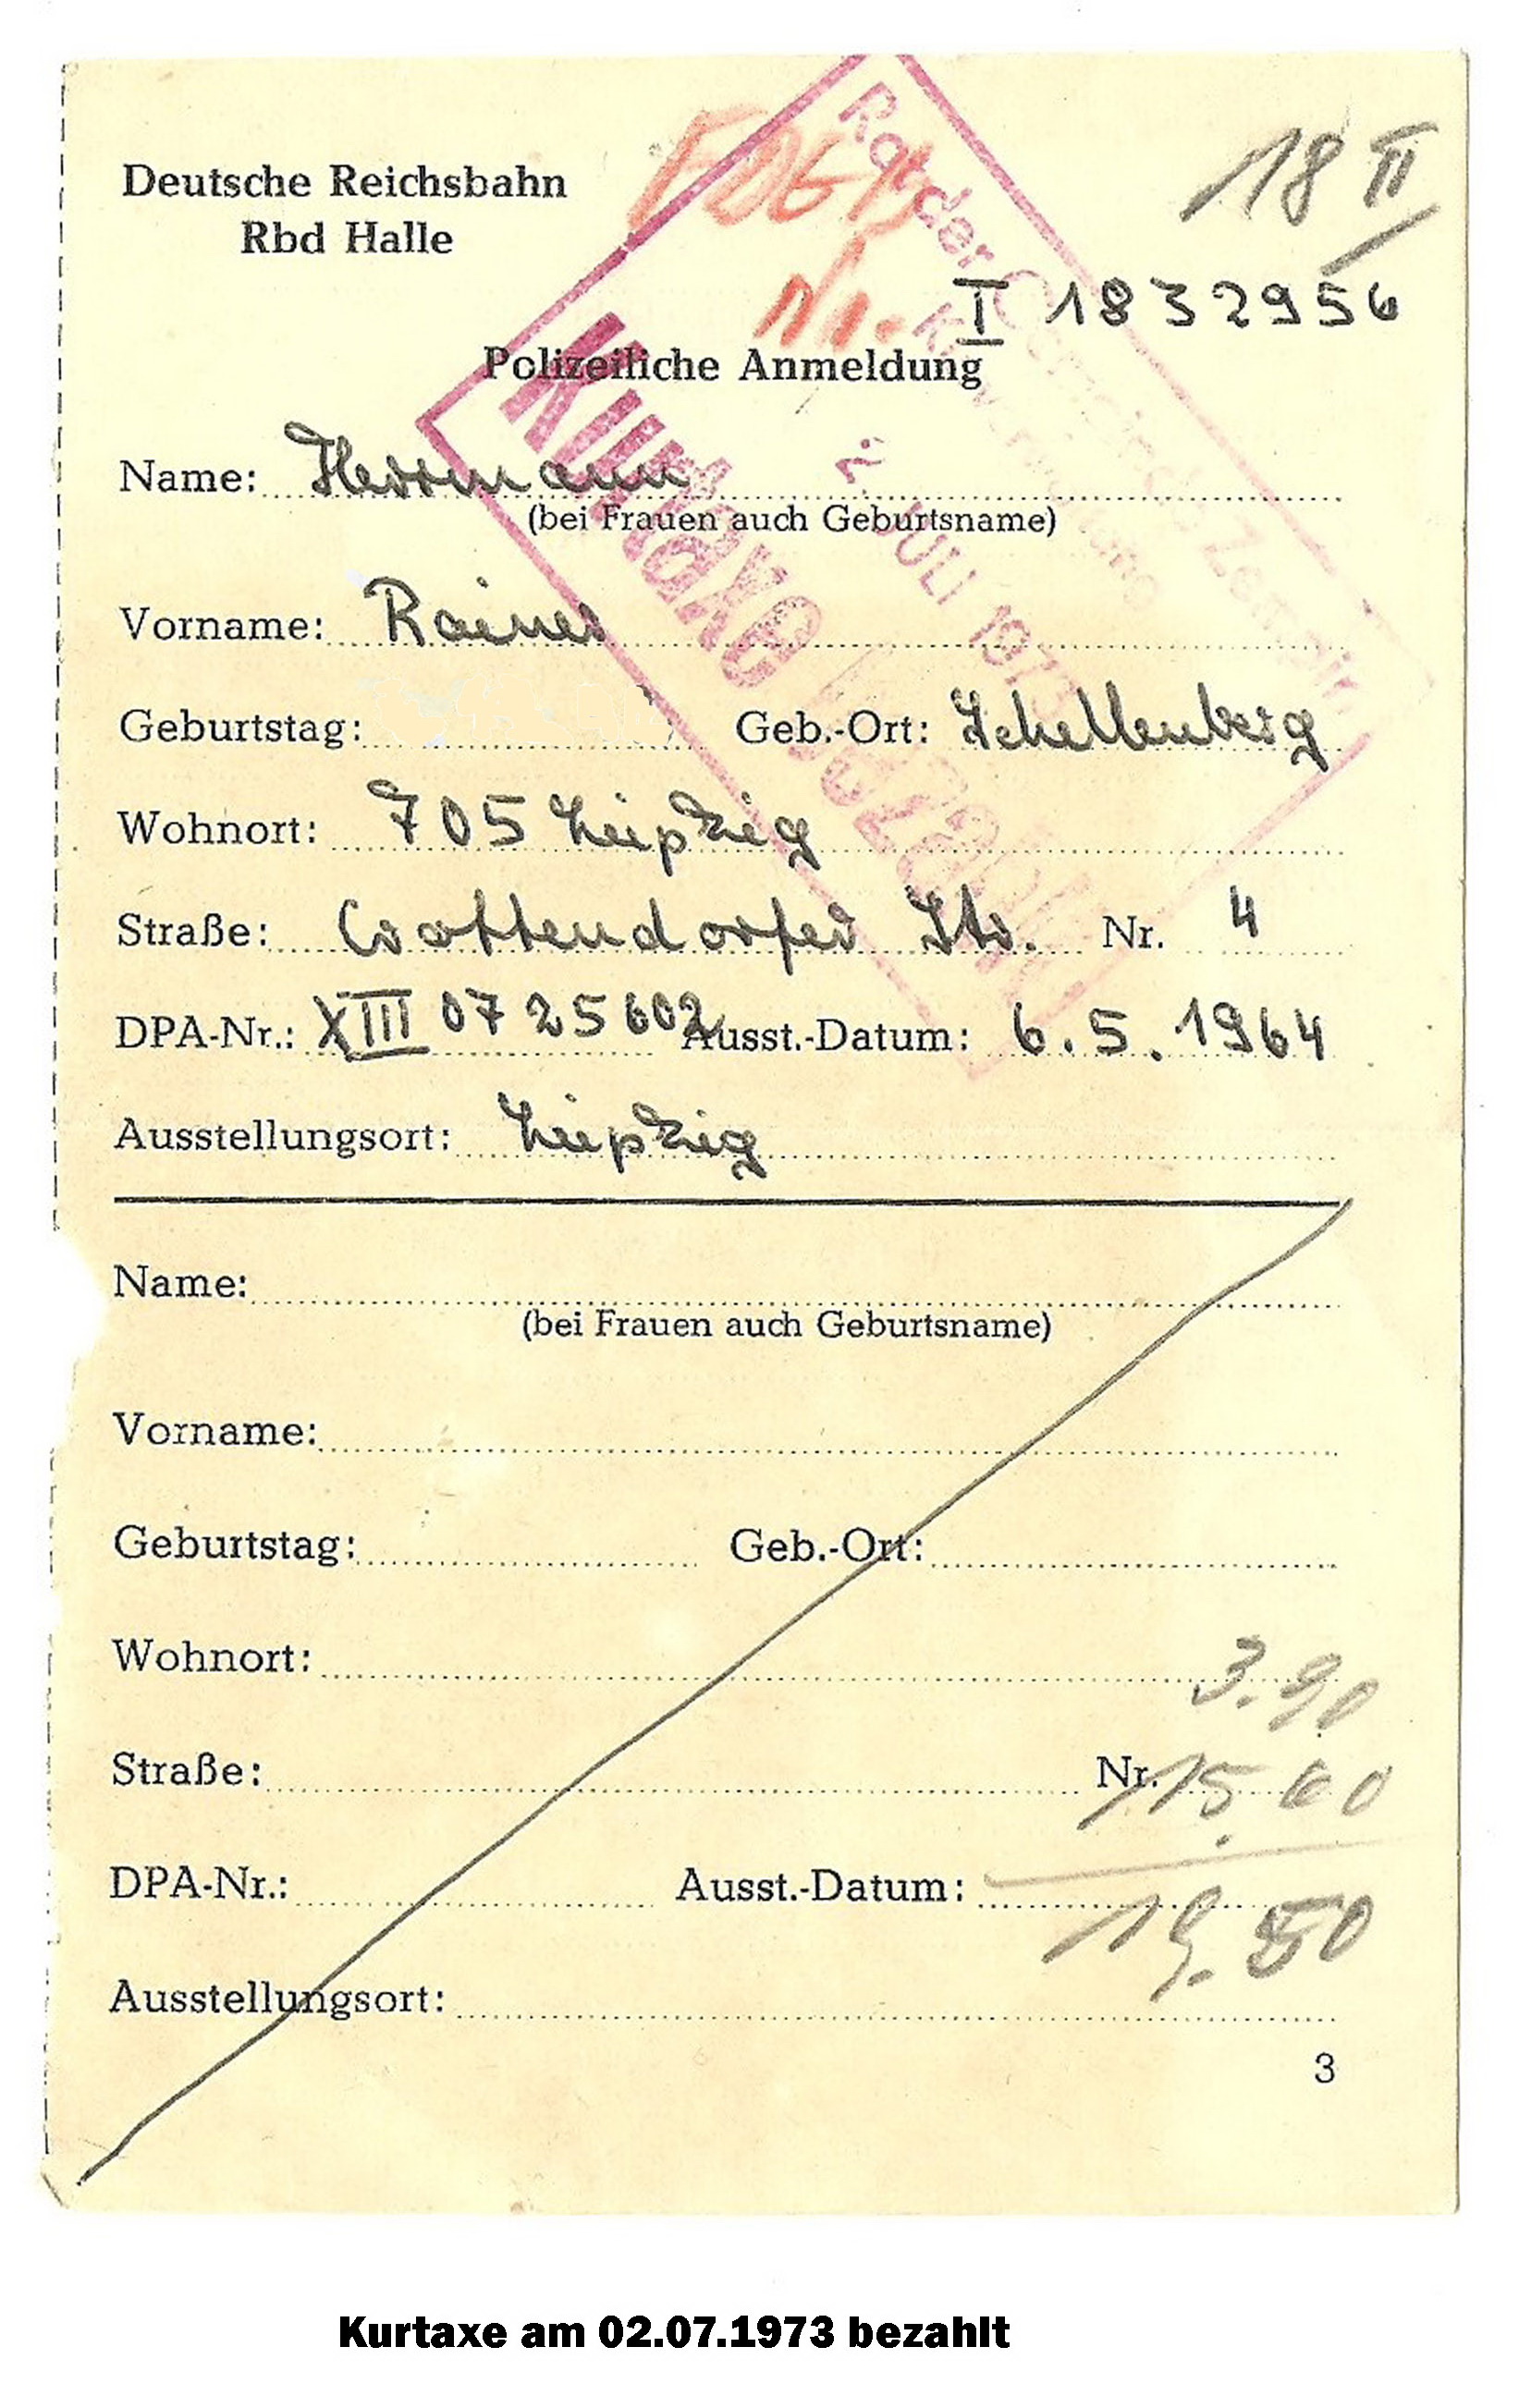 Deutsche Reichsbahn
Rbd Halle
18 II
FDGB
Nr. I 1832956
Polizeiliche Anmeldung
Rat der Gemeinde Zempin
Kurverwaltung
2. JULI 1973
Kurtaxe bezahlt
Name: Herrmann
(bei Frauen auch Geburtsname)
Vorname: Rainer
Geburtstag: Geb.-Ort: Schellenberg
Wohnort: 705 Leipzig
Straße: Crottendorfer Str. Nr. 4
DPA-Nr.: XIII 0725602 Ausst.-Datum: 6.5.1964
Ausstellungsort: Leipzig
Name:
(bei Frauen auch Geburtsname)
Vorname:
Geburtstag: Geb.-Ort:
Wohnort:
3.90
Straße: Nr.
15.60
DPA-Nr.: Ausst.-Datum:
19.50
Ausstellungsort:
3
Kurtaxe am 02.07.1973 bezahlt